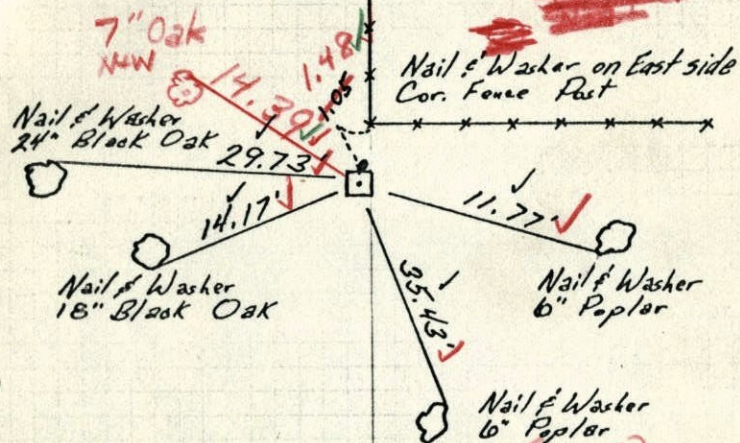 7" Oak
N&W
14.39'
1.48
1.05
Nail & Washer on East side
Cor. Fence Post
Nail & Washer
24" Black Oak
29.73'
14.17'
11.77'
Nail & Washer
18" Black Oak
35.43'
Nail & Washer
6" Poplar
Nail & Washer
6" Poplar